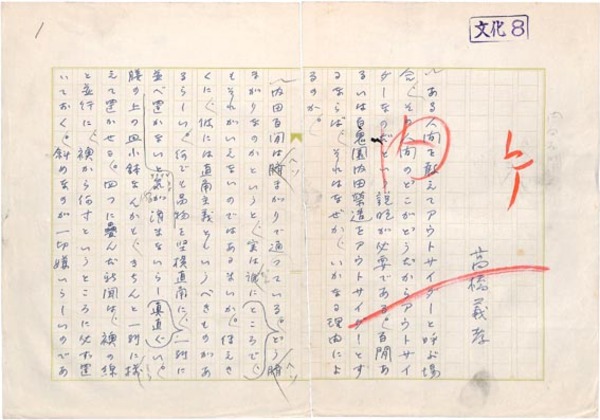 1
文化8
高橋義孝
ある人間を敢えてアウトサイダーと呼ぶ場
合、その人間のどこがどうだからアウトサイ
ダーなのだという説明が必要である。百閒あ
るいは百鬼園内田榮造をアウトサイダーとす
るならば、それはなぜか、いかなる理由によ
るのか。
内田百閒は臍まがりで通っている。どう臍
まがりなのかというと、実は誠に
もそれがいえないのではあるまいか。
くに、彼には直角主義ともいうべきものがあ
るらしい。何でも品物を竪横直角に、一列に
並べ置かないと気が済まないらしい。
膳の上の皿小鉢なんかもきちんと一列に揃
えて置かせる。四つに畳んだ新聞は、襖の線
と並行に、襖から何寸というところに必ず置
いておく。斜めなのが一切嫌いらしいのであ